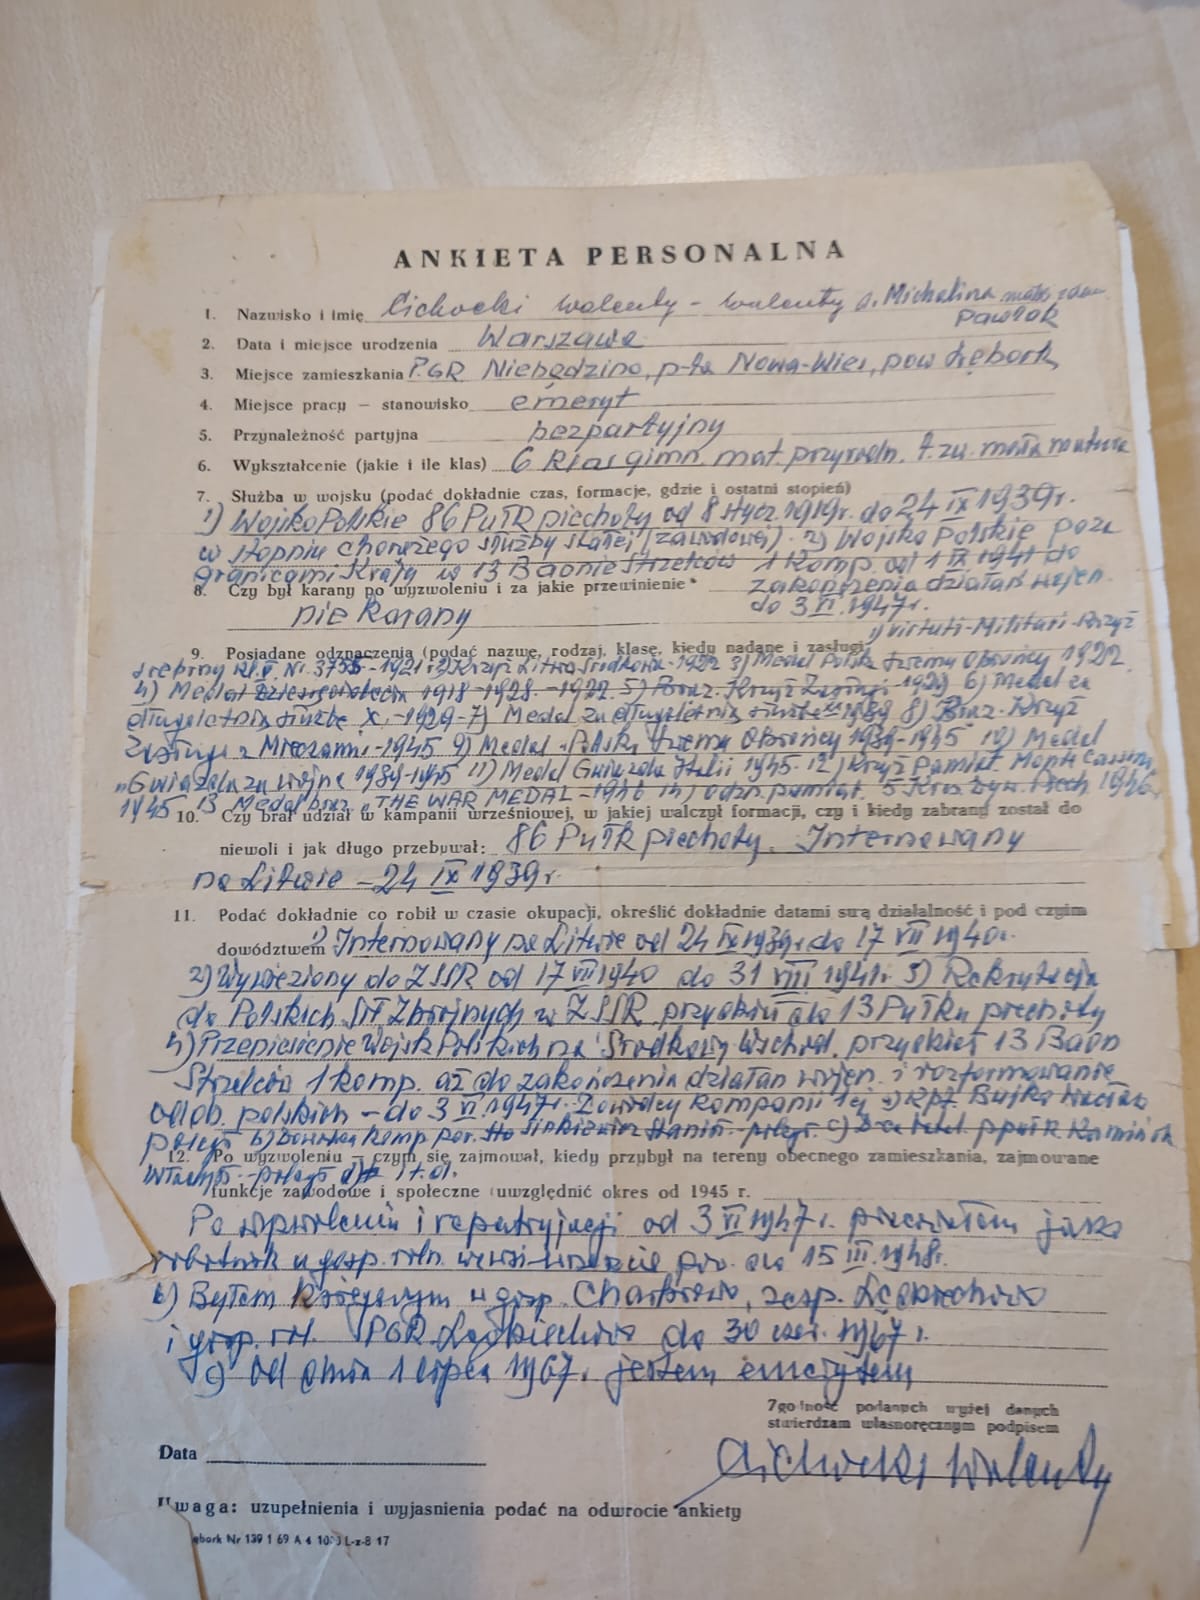 ANKIETA PERSONALNA
1. Nazwisko i imię Cichocki Walenty – Walenty i. Michalina
Pawlak
2. Data i miejsce urodzenia Warszawa
3. Miejsce zamieszkania PGR Niebędzino, p-ta Nowa-Wieś, pow Lębork
4. Miejsce pracy — stanowisko emeryt
5. Przynależność partyjna bezpartyjny
6. Wykształcenie (jakie i ile klas) 6 klas gimn. mat. przyrodn. t.zw. mała matura
7. Służba w wojsku (podać dokładnie czas, formacje, gdzie i ostatni stopień)
1) Wojsko Polskie 86 Pułk piechoty od 8 stycz. 1919r. do 24 IX 1939r.
w stopniu chorążego służby stałej (zawodowej). 2) Wojsko Polskie poza
granicami Kraju w 13 Baonie Strzelców 1 Komp. od 1 IX 1941 do
8. Czy był karany po wyzwoleniu i za jakie przewinienie zakończenia działań wojen.
nie karany do 3 VI 1947r.
9. Posiadane odznaczenia (podać nazwę, rodzaj, klasę, kiedy nadane i zasługi) 1) Virtuti-Militari-Krzyż
srebrny kl. V. Nr. -1921 r 2) Krzyż Litwa Środkowa-1922 3) Medal Polska Swemu Obrońcy 1922
4) Medal Dziesięciolecia 1918-1928. 5) Brąz. Krzyż Zasługi-1929 6) Medal za
długoletnią służbę X.-1929-7) Medal za długoletnią służbę 1939 8) Brąz-Krzyż
Zasługi z Mieczami-1945 9) Medal-Polska Swemu Obrońcy 1939-1945 10) Medal
„Gwiazda za wojnę 1939-1945 11) Medal Gwiazda Italii 1945. 12) Krzyż Pamiąt. Monte Cassino,
1945 13 Medal brąz „THE WAR MEDAL-1946 14) odzn. pamiąt. 5 Kres. Dyw. Piech. 1946.
10. Czy brał udział w kampanii wrześniowej, w jakiej walczył formacji, czy i kiedy zabrany został do
niewoli i jak długo przebywał: 86 Pułk piechoty. Internowany
na Litwie – 24 IX 1939r.
11. Podać dokładnie co robił w czasie okupacji, określić dokładnie datami swą działalność i pod czyim
dowództwem 1) Internowany na Litwie od 24 IX 1939r. do 17 VII 1940r.
2) Wywieziony do ZSSR od 17 VII 1940 do 31 VIII 1941r. 3) Rekrutacja
do Polskich Sił Zbrojnych w ZSSR przydział do 13 Pułku piechoty
4) Przeniesienie Wojsk Polskich na Środkowy Wschód, przydział 13 Baon
Strzelców 1 komp. aż do zakończenia działań wojen. i rozformowanie
oddz. polskich – do 3 VI. 1947r. Dowódcy Kompanii 1ej a) kpt. Bujko Wacław
poległ b) Dowódca Komp por. Sinkiewicz Stanis.-poległ. c) ppułk. Kamiński
12. Po wyzwoleniu — czym się zajmował, kiedy przybył na tereny obecnego zamieszkania, zajmowane
Władys.-poległ i t.d.
funkcje zawodowe i społeczne (uwzględnić okres od 1945 r.
Po wyzwoleniu i repatryjacji od 3 VI 1947r. pracowałem jako
robotnik w gosp. roln. pow. do 15 III. 1948r.
b) Byłem Księgowym w gosp. Charbrowo, zesp. Łebiechowo
i gosp. rol. PGR do 30 czer. 1967 r.
9 od dnia 1 lipca 1967. jestem emerytem
Zgodność podanych wyżej danych
stwierdzam własnoręcznym podpisem
Data
Cichocki Walenty
Uwaga: uzupełnienia i wyjaśnienia podać na odwrocie ankiety
ębork Nr 139 1 69 A 4 L-z-8 17